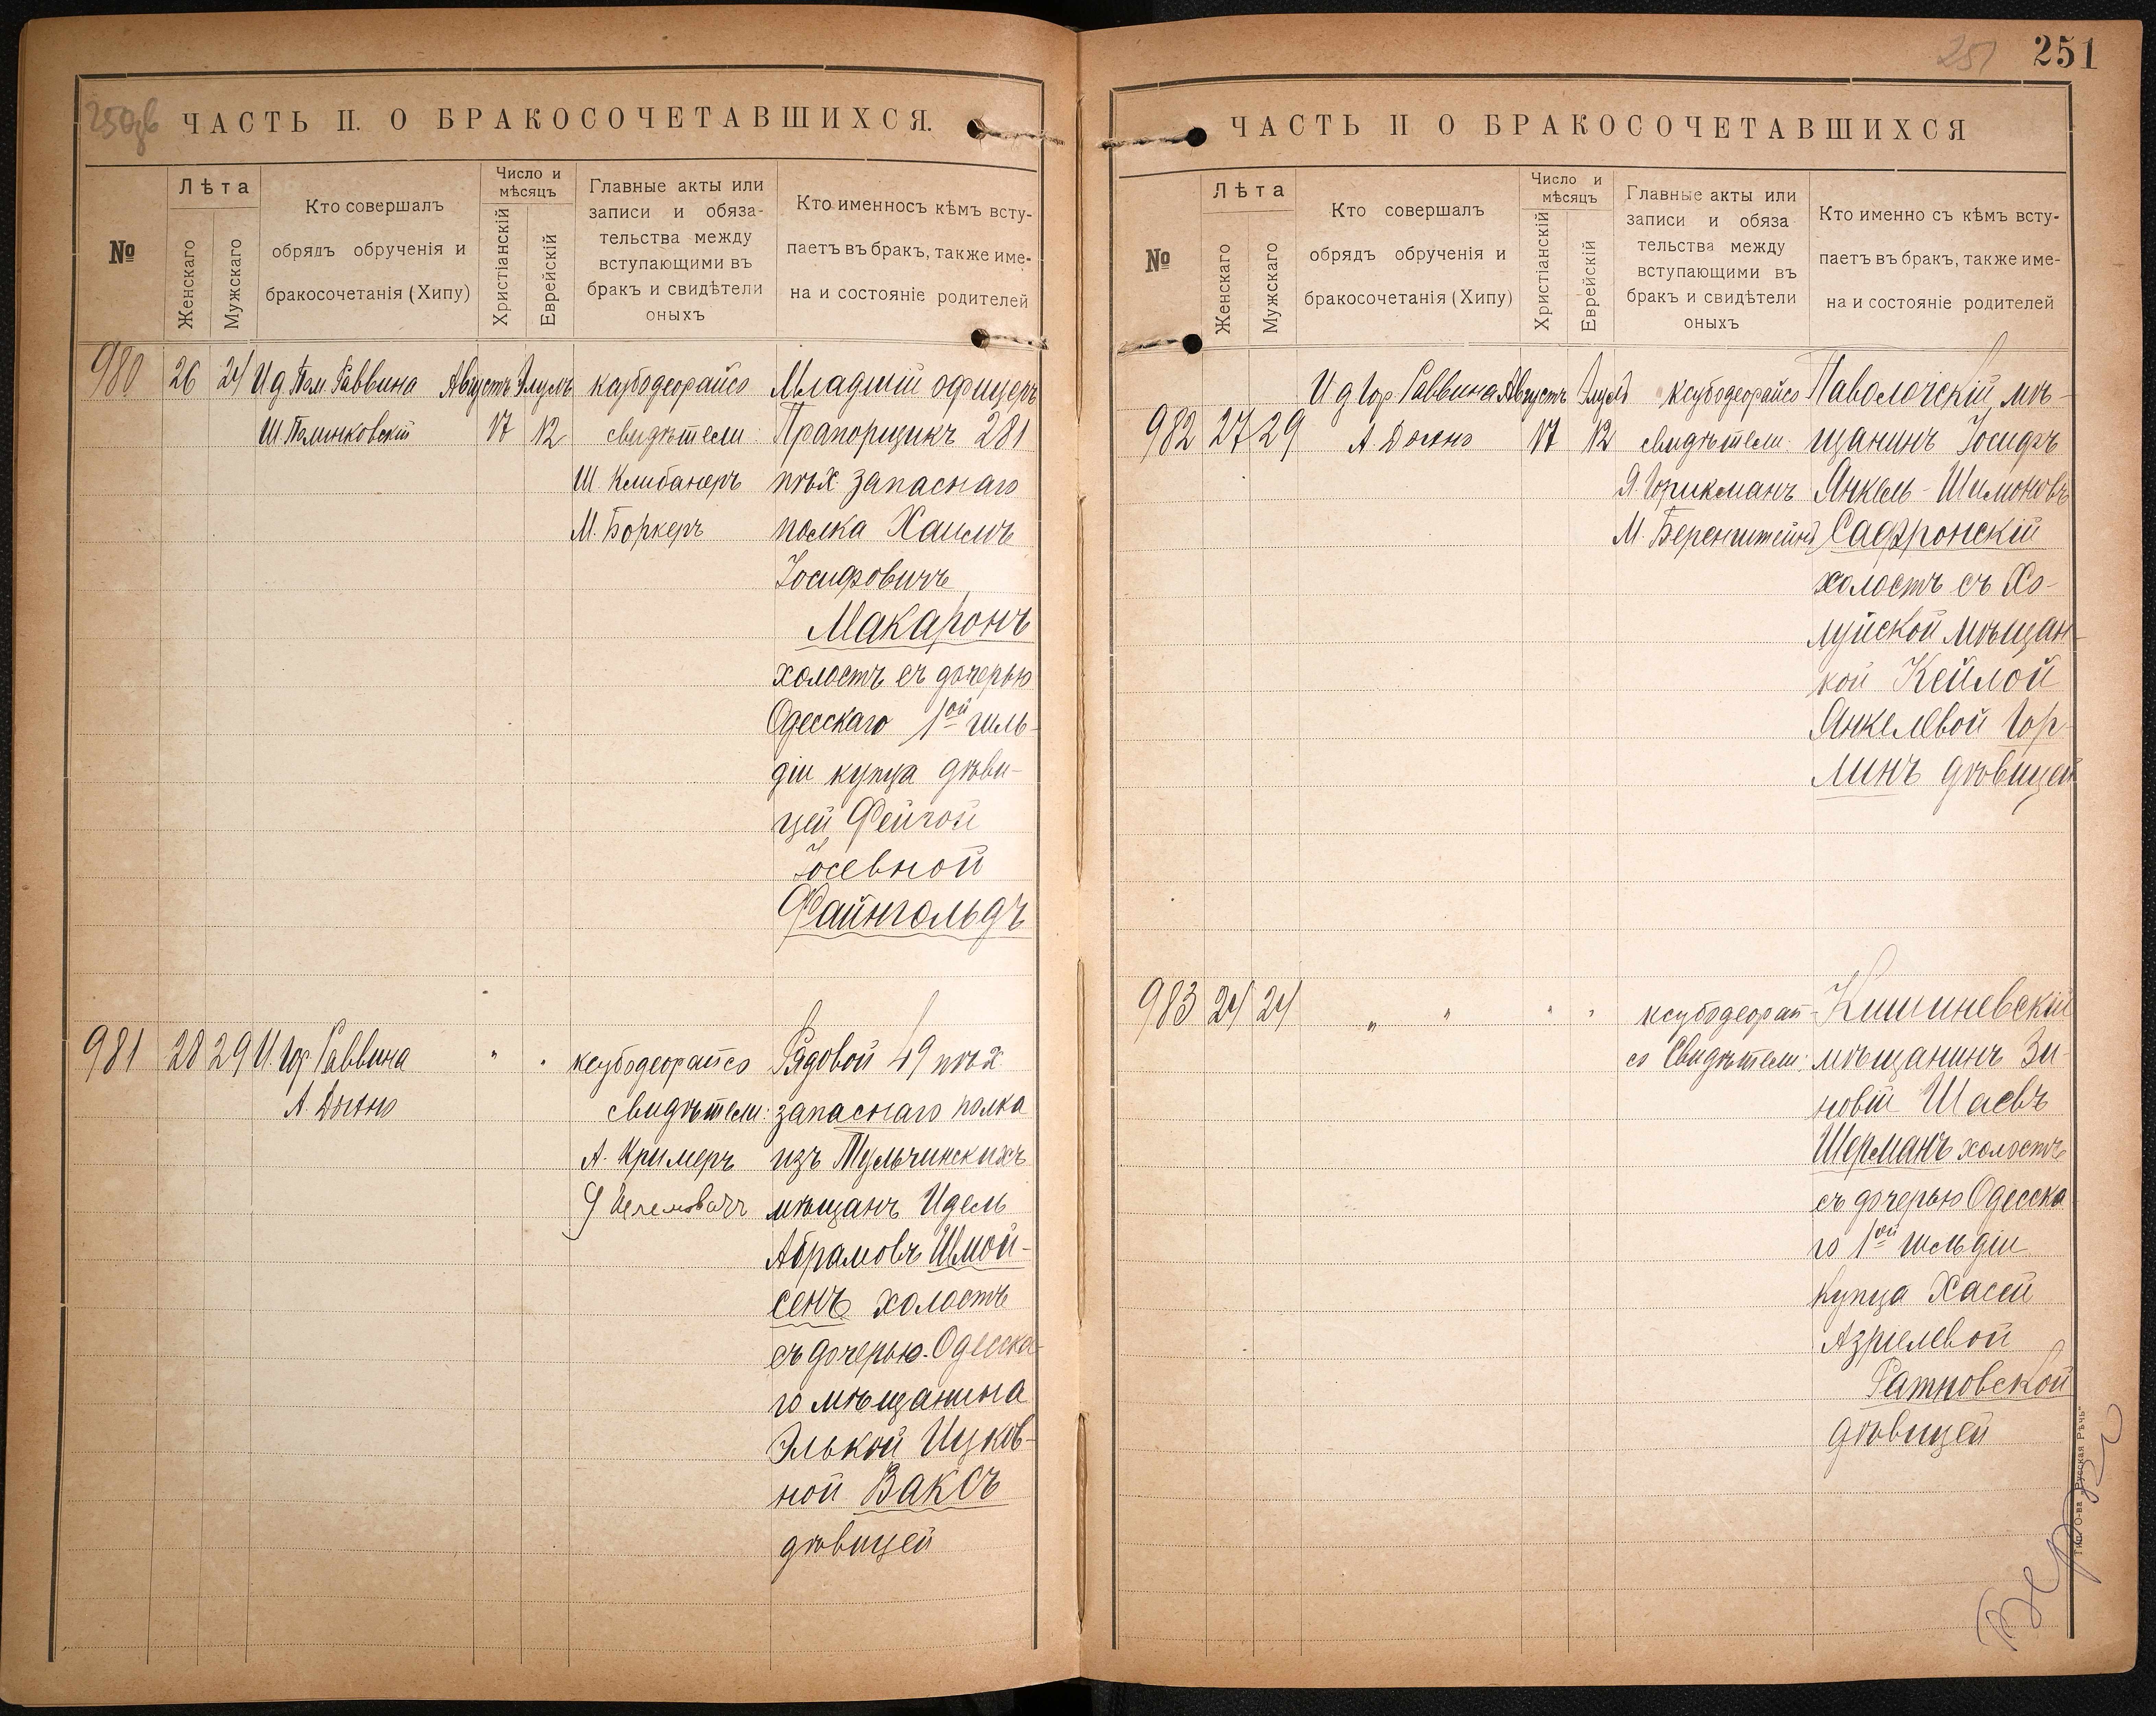 ЧАСТЬ II. О БРАКОСОЧЕТАВШИХСЯ.
№
Лѣта
Женскаго
Мужскаго
Кто совершалъ
обрядъ обрученія и
бракосочетанія (Хипу)
Число и
мѣсяцъ
Христіанскій
Еврейскій
Главные акты или
записи и обяза-
тельства между
вступающими въ
бракъ и свидѣтели
оныхъ
Кто именносъ кѣмъ всту-
паетъ въ бракъ, также име-
на и состояніе родителей
980 26 24 И д Пом. Раввина Августъ Элулъ ксубодеорайсо Младшій офицеръ
Ш. Полинковскій 17 12 свидѣтели: Прапорщикъ 281
Ш. Клибанеръ пѣх запаснаго
М. Боркеръ полка Хаимъ
Іосифовичъ
Макаронъ
холостъ съ дочерью
Одесскаго 1ой гиль-
діи купца дѣви-
цей Фейгой
Іосевной
Файнгольдъ
981 28 29 И. Гор. Раввина " " ксубодеорайсо Рядовой 49 пѣх.
А. Дыхно свидѣтели: запаснаго полка
А. Кримеръ изъ Тульчинскихъ
мѣщанъ Идель
Абрамовъ Шмой-
сенъ холостъ
съ дочерью Одесска-
го мѣщанина
Элькой Ицков-
ной Ваксъ
дѣвицей
251
251
ЧАСТЬ II О БРАКОСОЧЕТАВШИХСЯ
№
Лѣта
Женскаго
Мужскаго
Кто совершалъ
обрядъ обрученія и
бракосочетанія (Хипу)
Число и
мѣсяцъ
Христіанскій
Еврейскій
Главные акты или
записи и обяза
тельства между
вступающими въ
бракъ и свидѣтели
оныхъ
Кто именно съ кѣмъ всту-
паетъ въ бракъ, также име-
на и состояніе родителей
И д Гор. Раввина Августъ Элулъ ксубодеорайсо Паволочскій мѣ-
982 27 29 А. Дыхно 17 12 свидѣтели: щанинъ Іосифъ
Я. Янкель-Шимоновъ
М. Беренштейнъ Сафронскій
холостъ съ Хо-
луйской мѣщан-
кой Кейлой
Янкелевой Гор-
линъ дѣвицей
983 24 24 " " " " ксубодеорай- Кишиневскій
со Свидѣтели: мѣщанинъ Зи-
новій Шаевъ
Шерманъ холостъ
съ дочерью Одесска
го 1ой гильдіи
купца Хасей
Азріелевой
Ратновской
дѣвицей
Тип. О-ва „Русская Рѣчь"